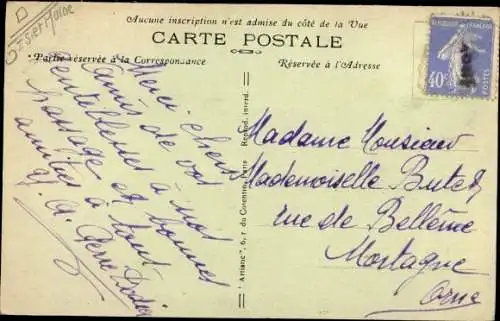 Aucune inscription n'est admise du côté de la Vue
CARTE POSTALE
Partie réservée à la Correspondance
Réservée à l'Adresse
40c
POSTES
Merci chers
amis de vos
gentillesses à mon
passage et bonnes
amitiés à tous
"Artiane", 6, r du Corentin, Paris Reprod. interd.
Madame Monsieur
Mademoiselle Butet
rue de Bellême
Mortagne
Orne